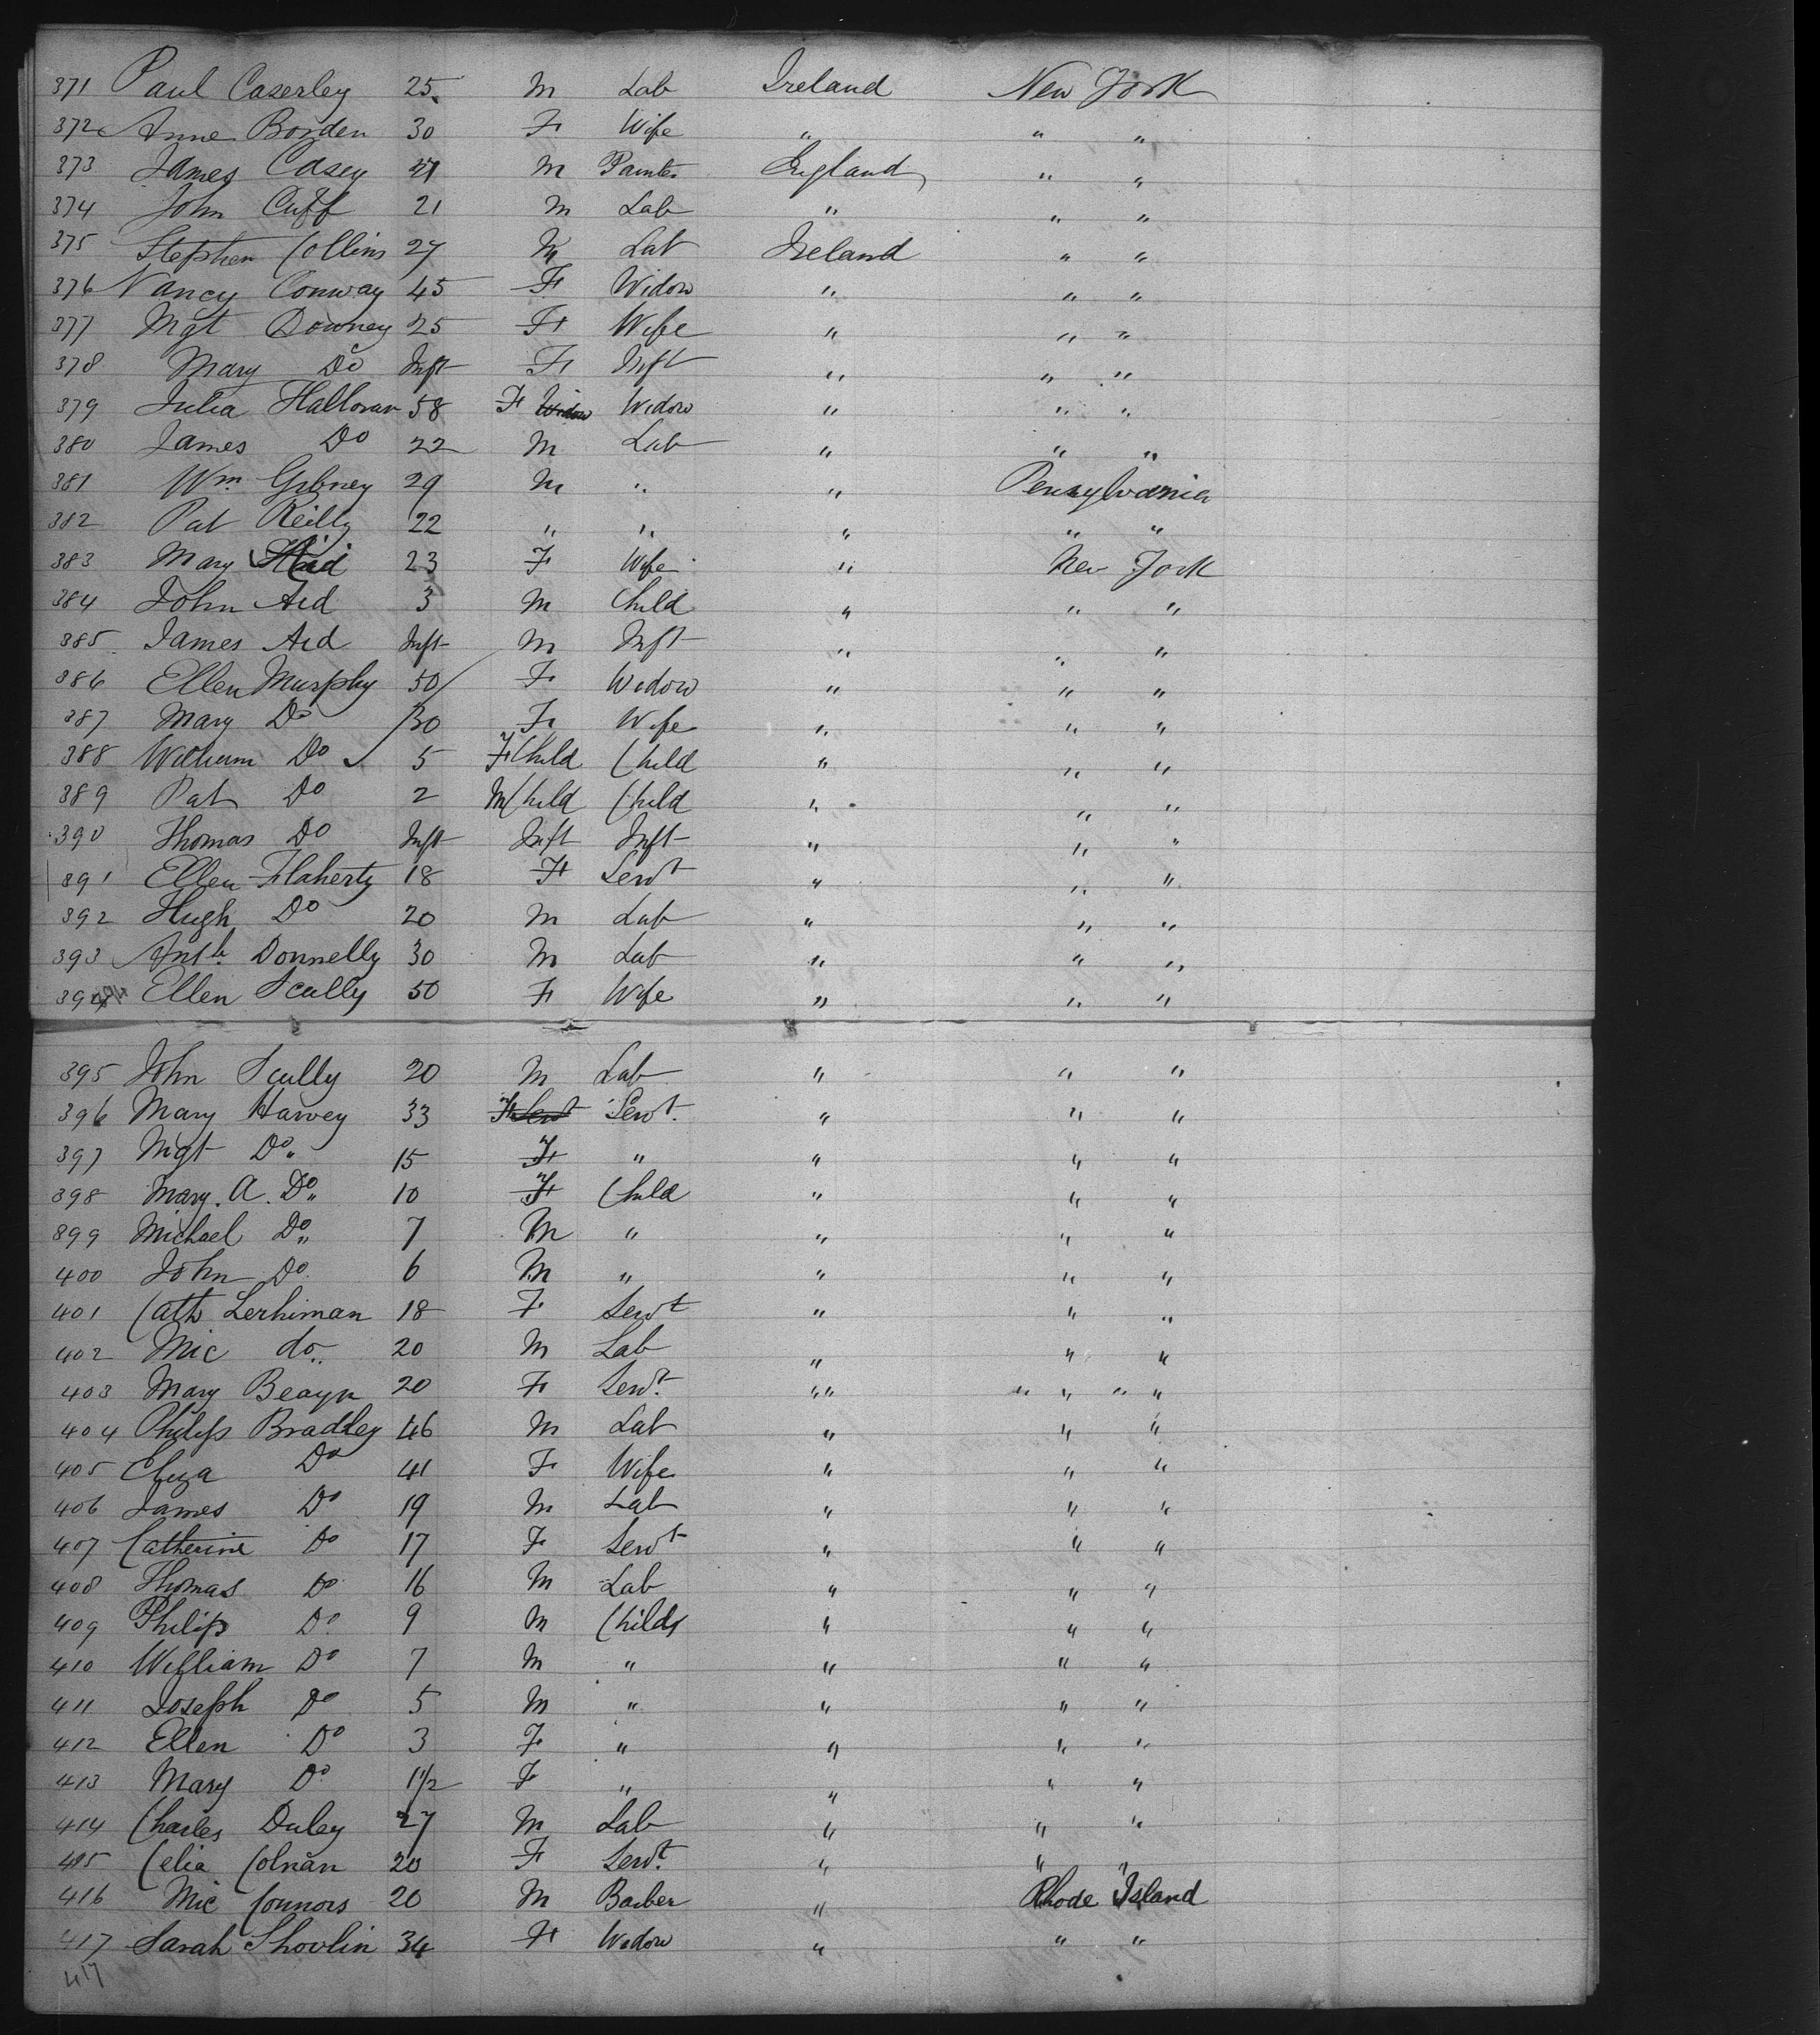 371 Paul Caserley 25 M Lab Ireland New York
372 Anne Borden 30 F Wife " " "
373 James Casey M Painter England " "
374 John Cuff 21 M Lab " " "
375 Stephen Collins 27 M Lab Ireland " "
376 Nancy Conway 45 F Widow " " "
377 Mgt Downey 25 F Wife " " "
378 Mary Do Inft F Inft " " "
379 Julia Halloran 58 F Widow Widow " " "
380 James Do 22 M Lab " " "
381 Wm Gibney 29 M " " Pensylvania
382 Pat Reilly 22 " " " " "
383 Mary 23 F Wife " New York
384 John Aid 3 M Child " " "
385 James Aid Inft M Inft " " "
386 Ellen Murphy 50 F Widow " " "
387 Mary Do 30 F Wife " " "
388 William Do 5 F Child Child " " "
389 Pat Do 2 M Child Child " " "
390 Thomas Do Inft Inft Inft " " "
391 Ellen Flaherty 18 F Servt " " "
392 Hugh Do 20 M Lab " " "
393 Anth Donnelly 30 M Lab " " "
394 Ellen Scully 50 F Wife " " "
395 John Scully 20 M Lab " " "
396 Mary Harvey 33 F Servt Servt " " "
397 Mgt Do 15 F " " " "
398 Mary A. Do 10 F Child " " "
399 Michael Do 7 M " " " "
400 John Do 6 M " " " "
401 Cath Lerhiman 18 F Servt " " "
402 Mic do 20 M Lab " " "
403 Mary 20 F Servt " " " " " "
404 Philip Bradley 46 M Lab " " "
405 Eliza Do 41 F Wife " " "
406 James Do 19 M Lab " " "
407 Catherine Do 17 F Servt " " "
408 Thomas Do 16 M Lab " " "
409 Philip Do 9 M Child " " "
410 William Do 7 M " " " "
411 Joseph Do 5 M " " " "
412 Ellen Do 3 F " " " "
413 Mary Do 1 1/2 F " " " "
414 Charles Duley 27 M Lab " " "
415 Celia Colnan 20 F Servt " " "
416 Mic Connors 20 M Barber " Rhode Island
417 Sarah Shovlin 34 F Widow " " "
417